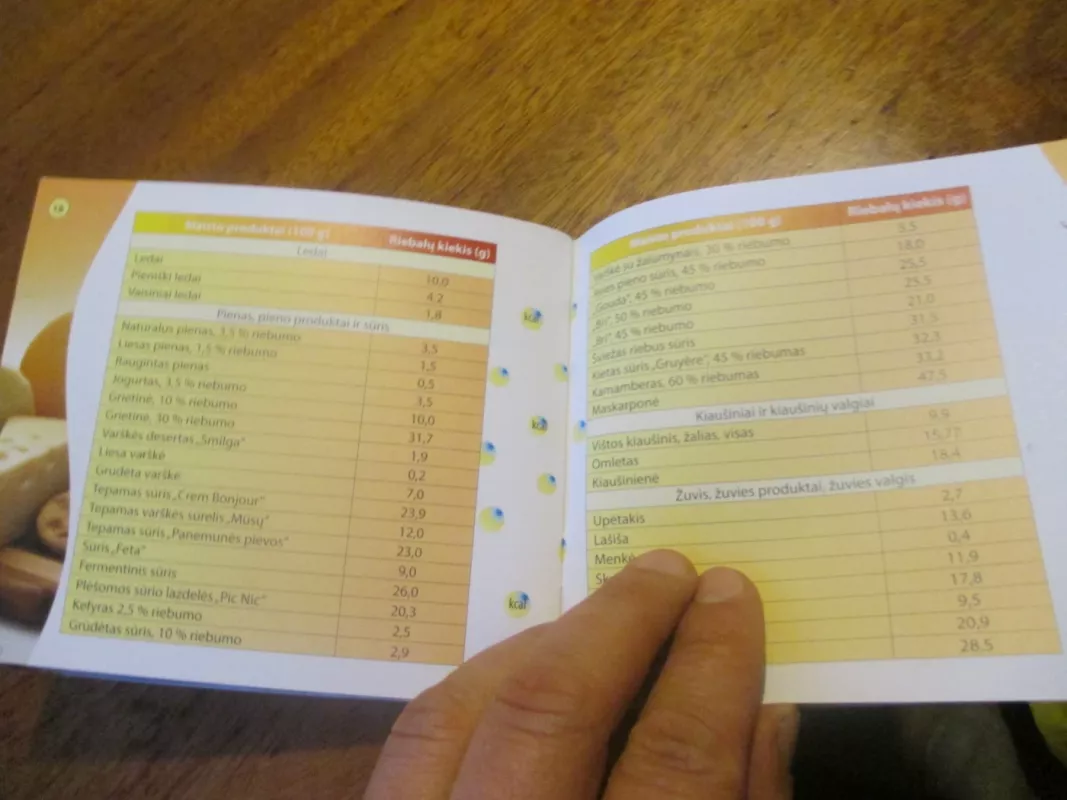 Maisto produktai (100 g) Riebalų kiekis (g)
Ledai
Ledai 10,0
Pieniški ledai 4,2
Vaisiniai ledai 1,8
Pienas, pieno produktai ir sūris
Natūralus pienas, 3,5 % riebumo 3,5
Liesas pienas, 1,5 % riebumo 1,5
Raugintas pienas 0,5
Jogurtas, 3,5 % riebumo 3,5
Grietinė, 10 % riebumo 10,0
Grietinė, 30 % riebumo 31,7
Varškės desertas „Smilga" 1,9
Liesa varškė 0,2
Grūdėta varškė 7,0
Tepamas sūris „Crem Bonjour" 23,9
Tepamas varškės sūrelis „Mūsų" 12,0
Tepamas sūris „Panemunės pievos" 23,0
Sūris „Feta" 9,0
Fermentinis sūris 26,0
Plėšomos sūrio lazdelės „Pic Nic" 20,3
Kefyras 2,5 % riebumo 2,5
Grūdėtas sūris, 10 % riebumo 2,9
kcal
kcal
kcal
Maisto produktai (100 g) Riebalų kiekis (g)
su žalumynais, 30 % riebumo 5,5
pieno sūris, 45 % riebumo 18,0
„Gouda", 45 % riebumo 25,5
„Bri", 50 % riebumo 25,5
„Bri", 45 % riebumo 21,0
Šviežas riebus sūris 31,5
Kietas sūris „Gruyère", 45 % riebumas 32,3
Kamamberas, 60 % riebumas 33,2
Maskarponė 47,5
Kiaušiniai ir kiaušinių valgiai
Vištos kiaušinis, žalias, visas 9,9
Omletas 15,77
Kiaušinienė 18,4
Žuvis, žuvies produktai, žuvies valgis
Upėtakis 2,7
Lašiša 13,6
Menkė 0,4
11,9
17,8
9,5
20,9
28,5